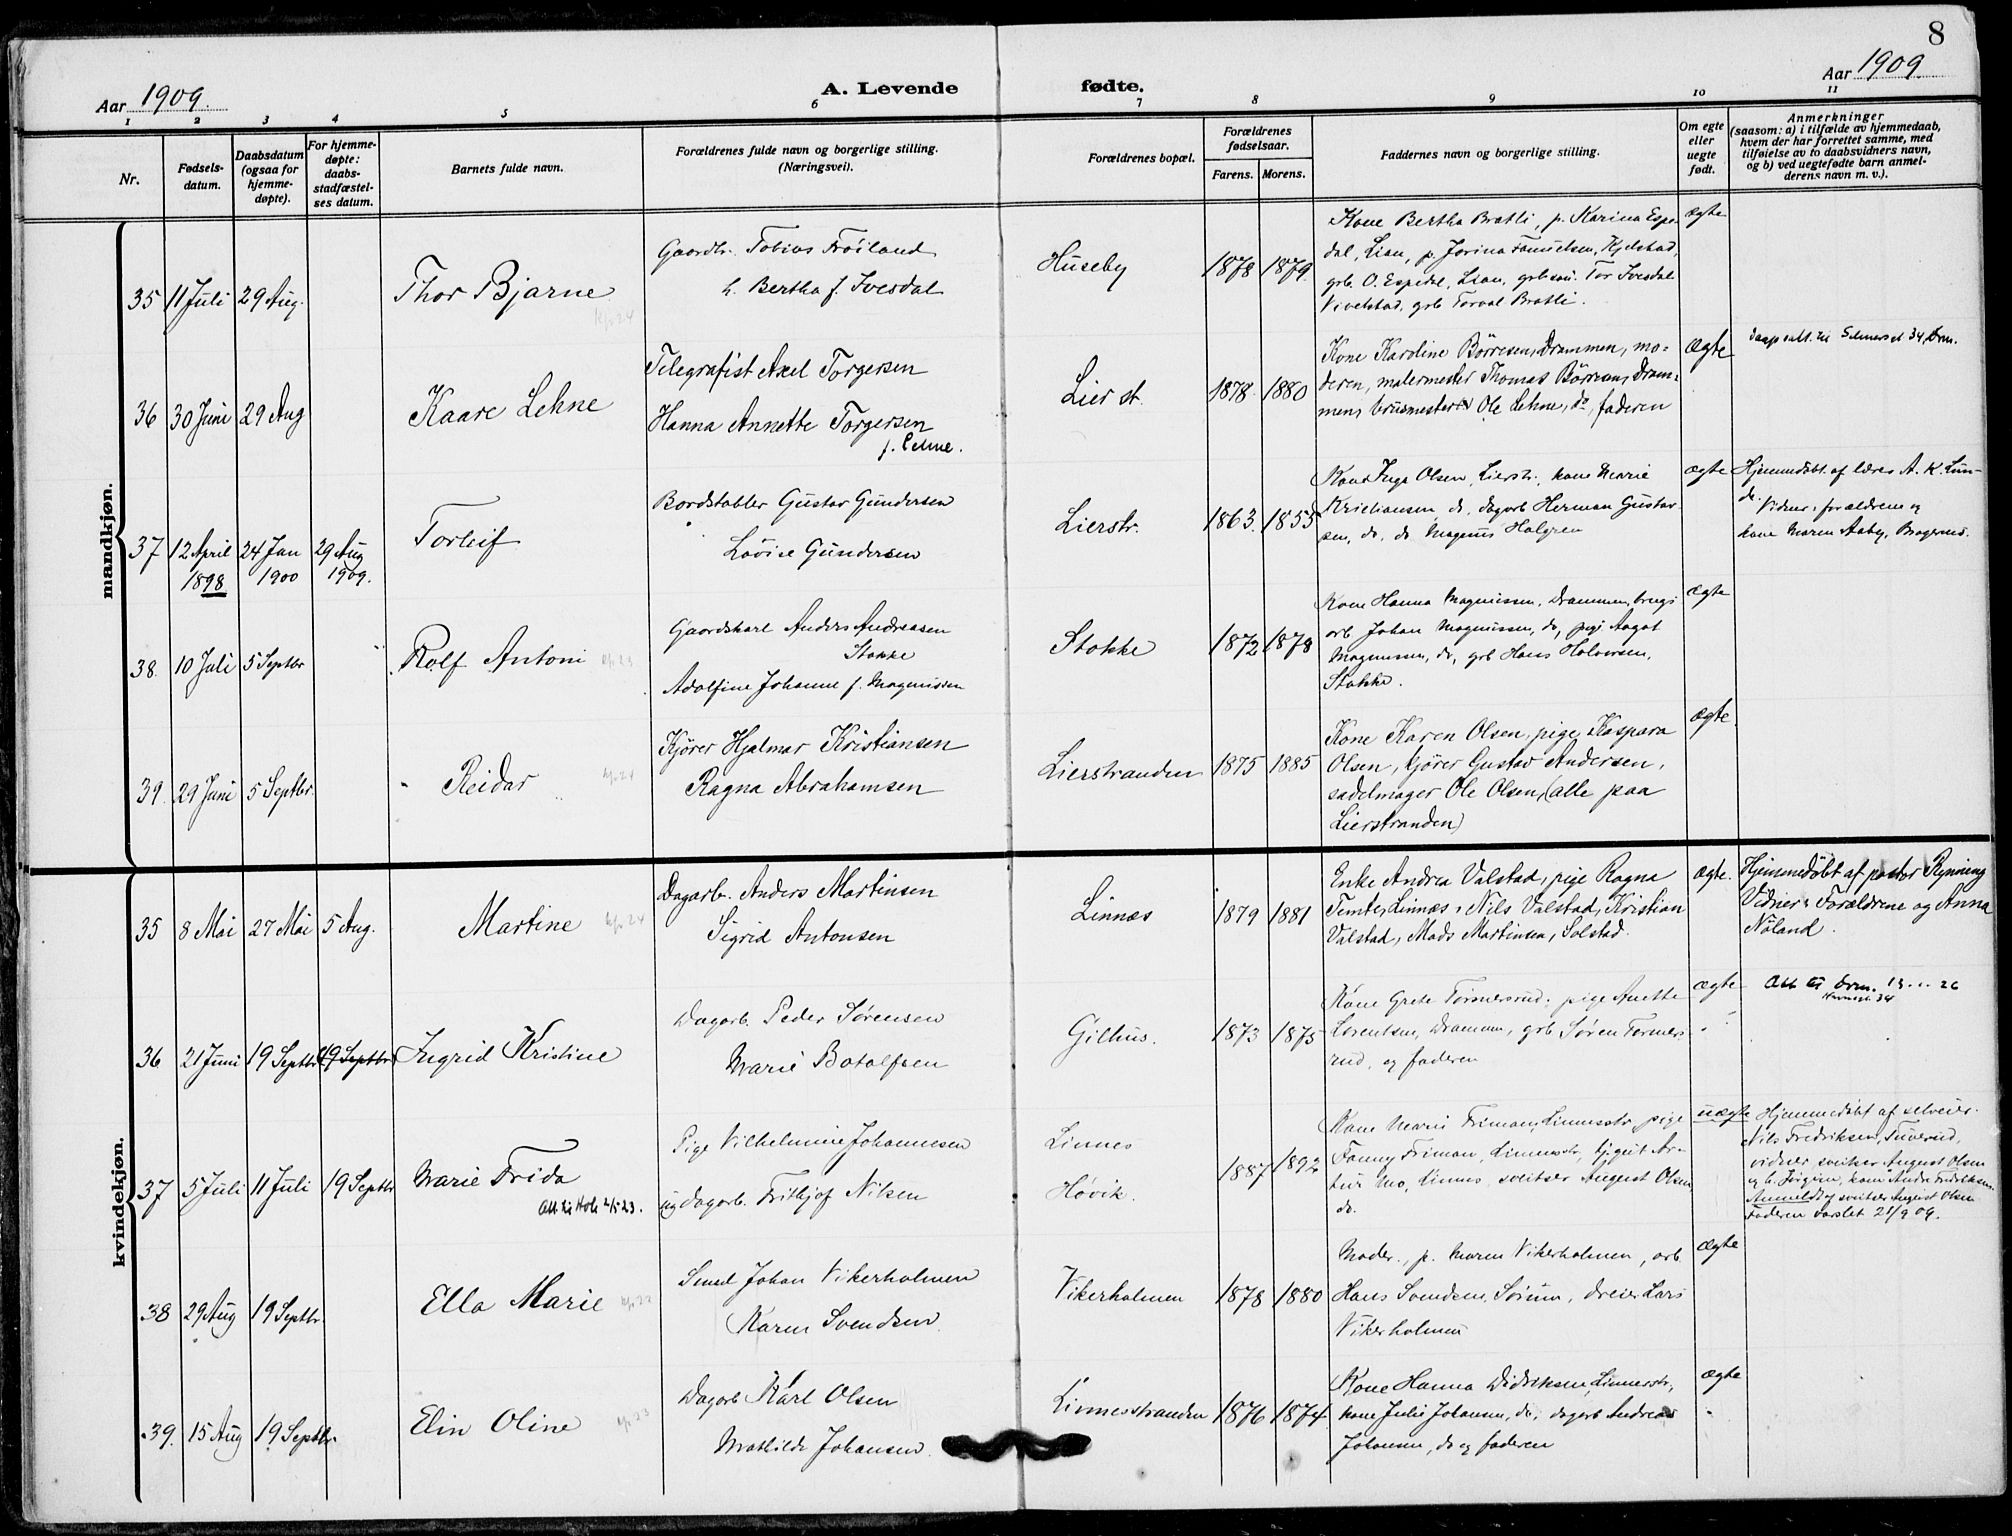 8
Aar 1909.
A. Levende fødte.
Aar 1909
1 2 3 4 5 6 7 8 9 10 11
Nr.
Fødsels-
datum.
Daabsdatum
(ogsaa for
hjemme-
døpte).
For hjemme-
døpte:
daabs-
stadfæstel-
ses datum.
Barnets fulde navn.
Forældrenes fulde navn og borgerlige stilling.
(Næringsvei).
Forældrenes bopæl.
Forældrenes
fødselsaar.
Farens. Morens.
Faddernes navn og borgerlige stilling.
Om egte
eller
uegte
født.
Anmerkninger
(saasom: a) i tilfælde av hjemmedaab,
hvem der har forrettet samme, med
tilføielse av to daabsvidners navn,
og b) ved uegtefødte barn anmel-
derens navn m. v.).
mandkjøn.
35 11 Juli 29 Aug. Thor Bjarne
Gaardbr. Tobias Frøiland
h. Bertha f. Ivesdal
Huseby 1878 1879
Kone Bertha Bratli, p. Karina Espe-
dal, Lian, p. Jorina Kjelstad,
grb. O. Espedal, Lian, Tor Ivesdal
grb Bratli.
ægte
36 30 Juni 29 Aug Kaare Lehne
Telegrafist Axel Torgersen
Hanna Annette Torgersen
f. Lehne.
Lier st. 1878 1880
Kone Karoline Børresen, Drammen, mo-
deren, malermester Thomas Børresen, Dram-
men, Ole Lehne, do, faderen
ægte
37 12 April 1898 24 Jan 1900 29 Aug 1909. Torleif
Bordstabler Gustav Gundersen
Lovise Gundersen
Lierstr. 1863. 1855
Kone Inga Olsen, Lierstr., kone Marie
Kristiansen do, dagarb Herman Gustav-
sen, do, do Magnus Holgren
ægte
Hjemmedøbt af lærer A. K. Lun-
de.
Vidner: forældrene og
kone Maren Aaby, Bragernes.
38. 10 Juli 5 Septbr Rolf Antoni
Gaardskarl Anders Andreasen
Stokke
Adolfine Johanne f. Magnussen
Stokke 1872 1878
Kone Hanna Magnussen, Drammen, brugs-
arb Johan Magnussen, do, pige Aagot
Magnussen, do, grb Hans Halvorsen,
Stokke.
ægte
39. 29 Juni 5 Septbr. Reidar
Kjører Hjalmar Kristiansen
Ragna Abrahamsen
Lierstranden 1875 1885
Kone Karen Olsen, pige Kaspara
Olsen, kjører Gustav Andersen,
sadelmager Ole Olsen, (alle paa
Lierstranden)
ægte.
kvindekjøn.
35 8 Mai 27 Mai 5 Aug. Martine
Dagarb. Anders Martinsen
Sigrid Antonsen
Linnæs 1879 1881
Enke Andrea Valstad, pige Ragna
Temte, Linnæs, Nils Valstad, Kristian
Valstad, Mads Martinsen, Solstad.
ægte.
Hjemmedøbt af pastor Rynning
Vidner: Forældrene og Anna
Nøland.
36 21 Juni 19 Septbr 19 Septbr Ingrid Kristine
Dagarb. Peder Sørensen
Marie Botolfsen
Gilhus. 1873 1875
Kone Grete Tørmersrud, pige Anette
Lorentsen, Drammen, grb Søren Tormers-
rud, og faderen
ægte
37 5 Juli 11 Juli 19 Septbr Marie Frida
Pige Vilhelmine Johannesen
ug dagarb. Frithjof Nilsen
Linnes
Høvik.
1887 1892
Kone Marie Friman, Linnesstr, pige
Fanny Friman, Linnesstr, Ar-
tur Mo, Linnes, sveitser August Olsen
do.
uægte
Hjemmedøbt af selveier
Nils Fredriksen, Tuverud,
vidner, sveitser August Olsen
Anmeldt af sveitser August Olsen
Faderen varslet 21/9 09.
38 29 Aug 19 Septbr. Ella Marie
Smed Johan Vikerholmen
Karen Svendsen
Vikerholmen 1878 1880
Moder. p. Maren Vikerholmen, arb
Hans Svendsen, Sørum, dreier Lars
Vikerholmen
ægte
39. 15 Aug 19 Septbr. Elin Oline
Dagarb Karl Olsen
Mathilde Johansen.
Linnesstranden 1876 1874.
Kone Hanna Didriksen, Linnesstr,
kone Julie Johansen, do, dagarb Andreas
Johansen, do og faderen
ægte